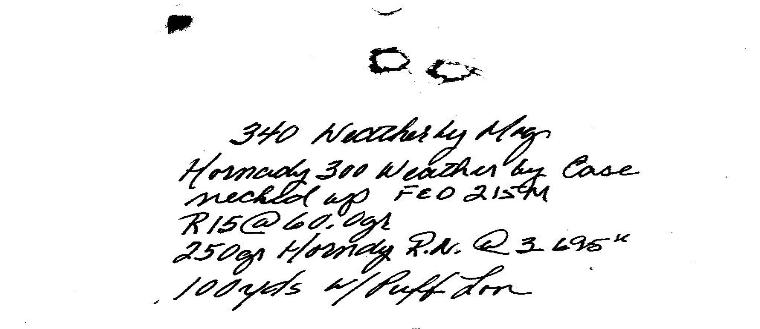 340 Weatherby Mag
Hornady 300 Weatherby Case
necked up FED 215M
R15 @ 60.0gr
250gr Horndy R.N. @ 3.695"
100yds w/ Puff Lon